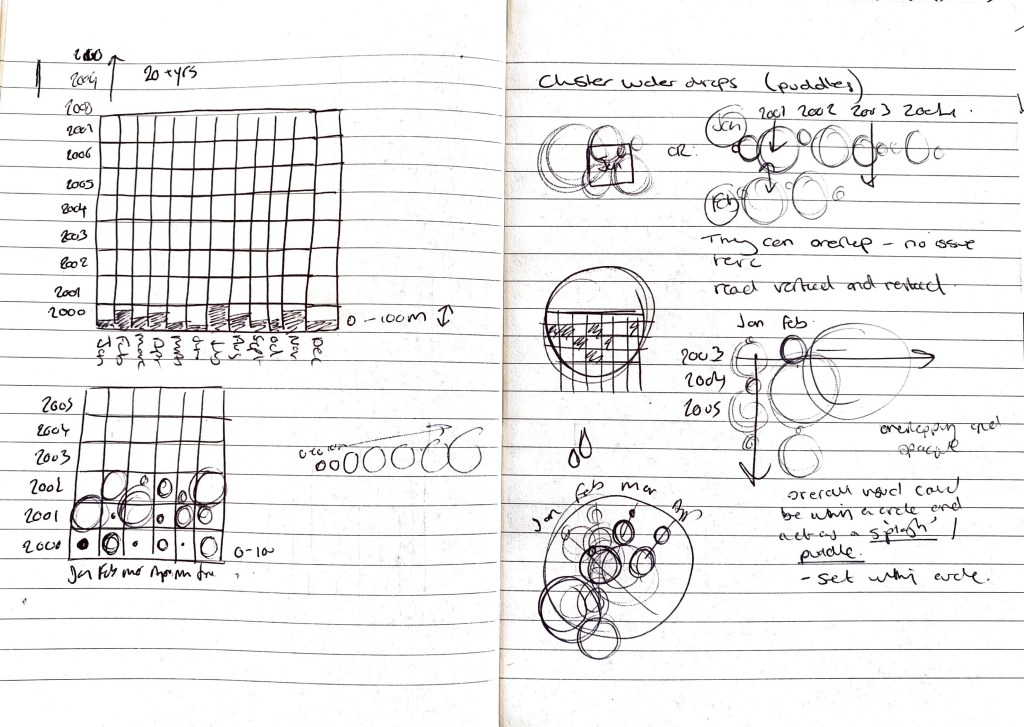 2004
20+yrs
2008
2007
2006
2005
2004
2003
2002
2001
2000
0-100m
Jan Feb Mar Apr Jul Aug Sept Oct Nov Dec
2005
2004
2003
2002
2001
2000
0-100
Jan Feb mar
Cluster water drops (puddles)
Jan
OR:
Jan
2001 2002 2003 2004
Feb
They can overlap - no issue
here
read vertical and
Jan Feb
2003
2004
2005
overlapping and
opaque
Jan Feb Mar Apr
overall visual could
be within a circle and
act as a 'splash' /
puddle.
- set within circle.